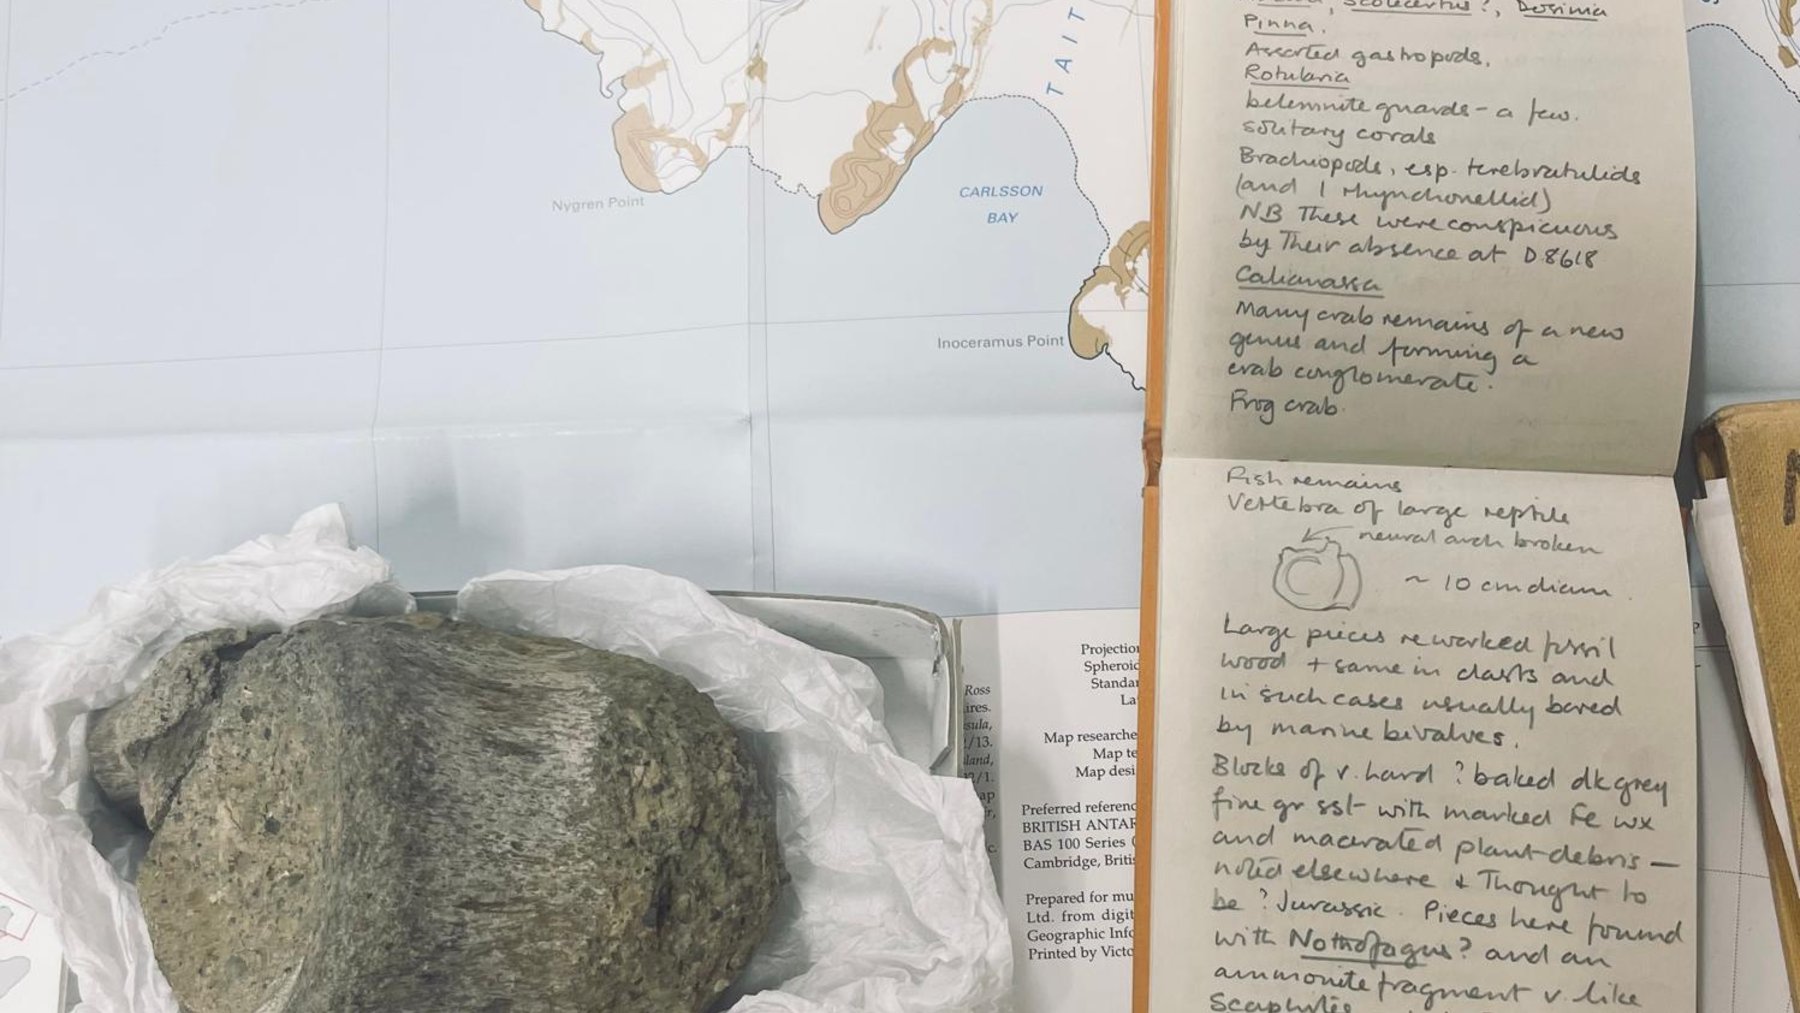 TAIT
Nygren Point
CARLSSON
BAY
Inoceramus Point
Ross
ires.
sula,
/13.
land,
2/1.
ap
r,
c.
Projection
Spheroid
Standar
La
Map researche
Map te
Map desi
Preferred referenc
BRITISH ANTAR
BAS 100 Series
Cambridge, Britis
Prepared for mu
Ltd. from digit
Geographic Info
Printed by Victo
Dosinia
Pinna.
Assorted gastropods.
Rotularia
belemnite guards - a few.
solitary corals
Brachiopods, esp. terebratulids
(and 1 rhynchonellid)
NB These were conspicuous
by their absence at D.8618
Callianassa
Many crab remains of a new
genus and forming a
crab conglomerate.
Frog crab.
Fish remains
Vertebra of large reptile
neural arch broken
~ 10 cm diam.
Large pieces reworked fossil
wood + same in clasts and
in such cases usually bored
by marine bivalves.
Blocks of v. hard ? baked dk grey
fine gr sst with marked Fe wx
and macerated plant debris —
noted elsewhere & Thought to
be ? Jurassic. Pieces here found
with Nothofagus? and an
ammonite fragment v. like
Scaphites